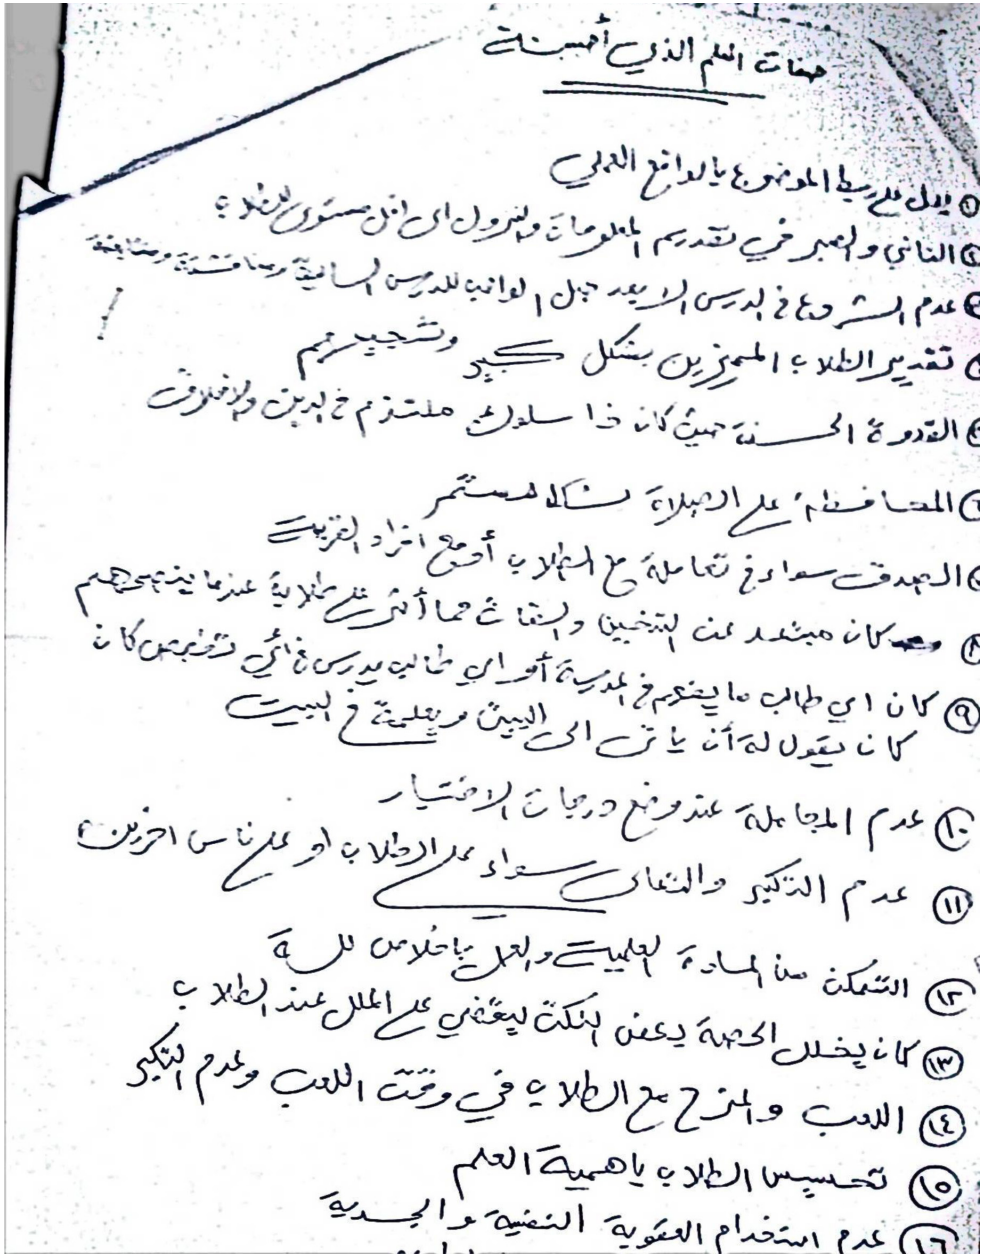 صفات المعلم الذي أحببته
① يدل على ربط الموضوع بالواقع العملي
② التأني والصبر في تقديم المعلومات والنزول الى اقل مستوى للطلاب
③ عدم الشروع في الدرس الا بعد حل الواجب للدرس السابق ومناقشته ومتابعته
تقدير الطلاب المميزين بشكل كبير وتشجيعهم
القدوة الحسنة حيث كان ذا سلوك ملتزم في الدين والاخلاق
٦ المحافظة على الصلاة بشكل مستمر
الصدق سواء في تعامله مع الطلاب أو مع افراد القرية
٨ كان مبتعد عن التدخين والقات مما أثر على طلابه عندما ينصحهم
٩ كان اي طالب ما يفهم في المدرسة أو اي طالب يدرس في أي تخصص كان
كان يقول له أن يأتي الى البيت ويعلمه في البيت
١٠ عدم المجاملة عند وضع درجات الاختبار
١١ عدم التكبر والتعالي سواء على الطلاب او على ناس اخرين
١٢ التمكن من المادة العلمية والعمل باخلاص لله
١٣ كان يخلل الحصة بعض النكت ليقضي على الملل عند الطلاب
١٤ اللعب والمزح مع الطلاب في وقت اللعب وعدم التكبر
١٥ تحسيس الطلاب باهمية العلم
١٦ عدم استخدام العقوبة النفسية والجسدية